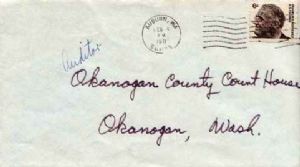 AUBURN, WA
PM
Auditor
Okanogan County Court House
Okanogan, Wash.